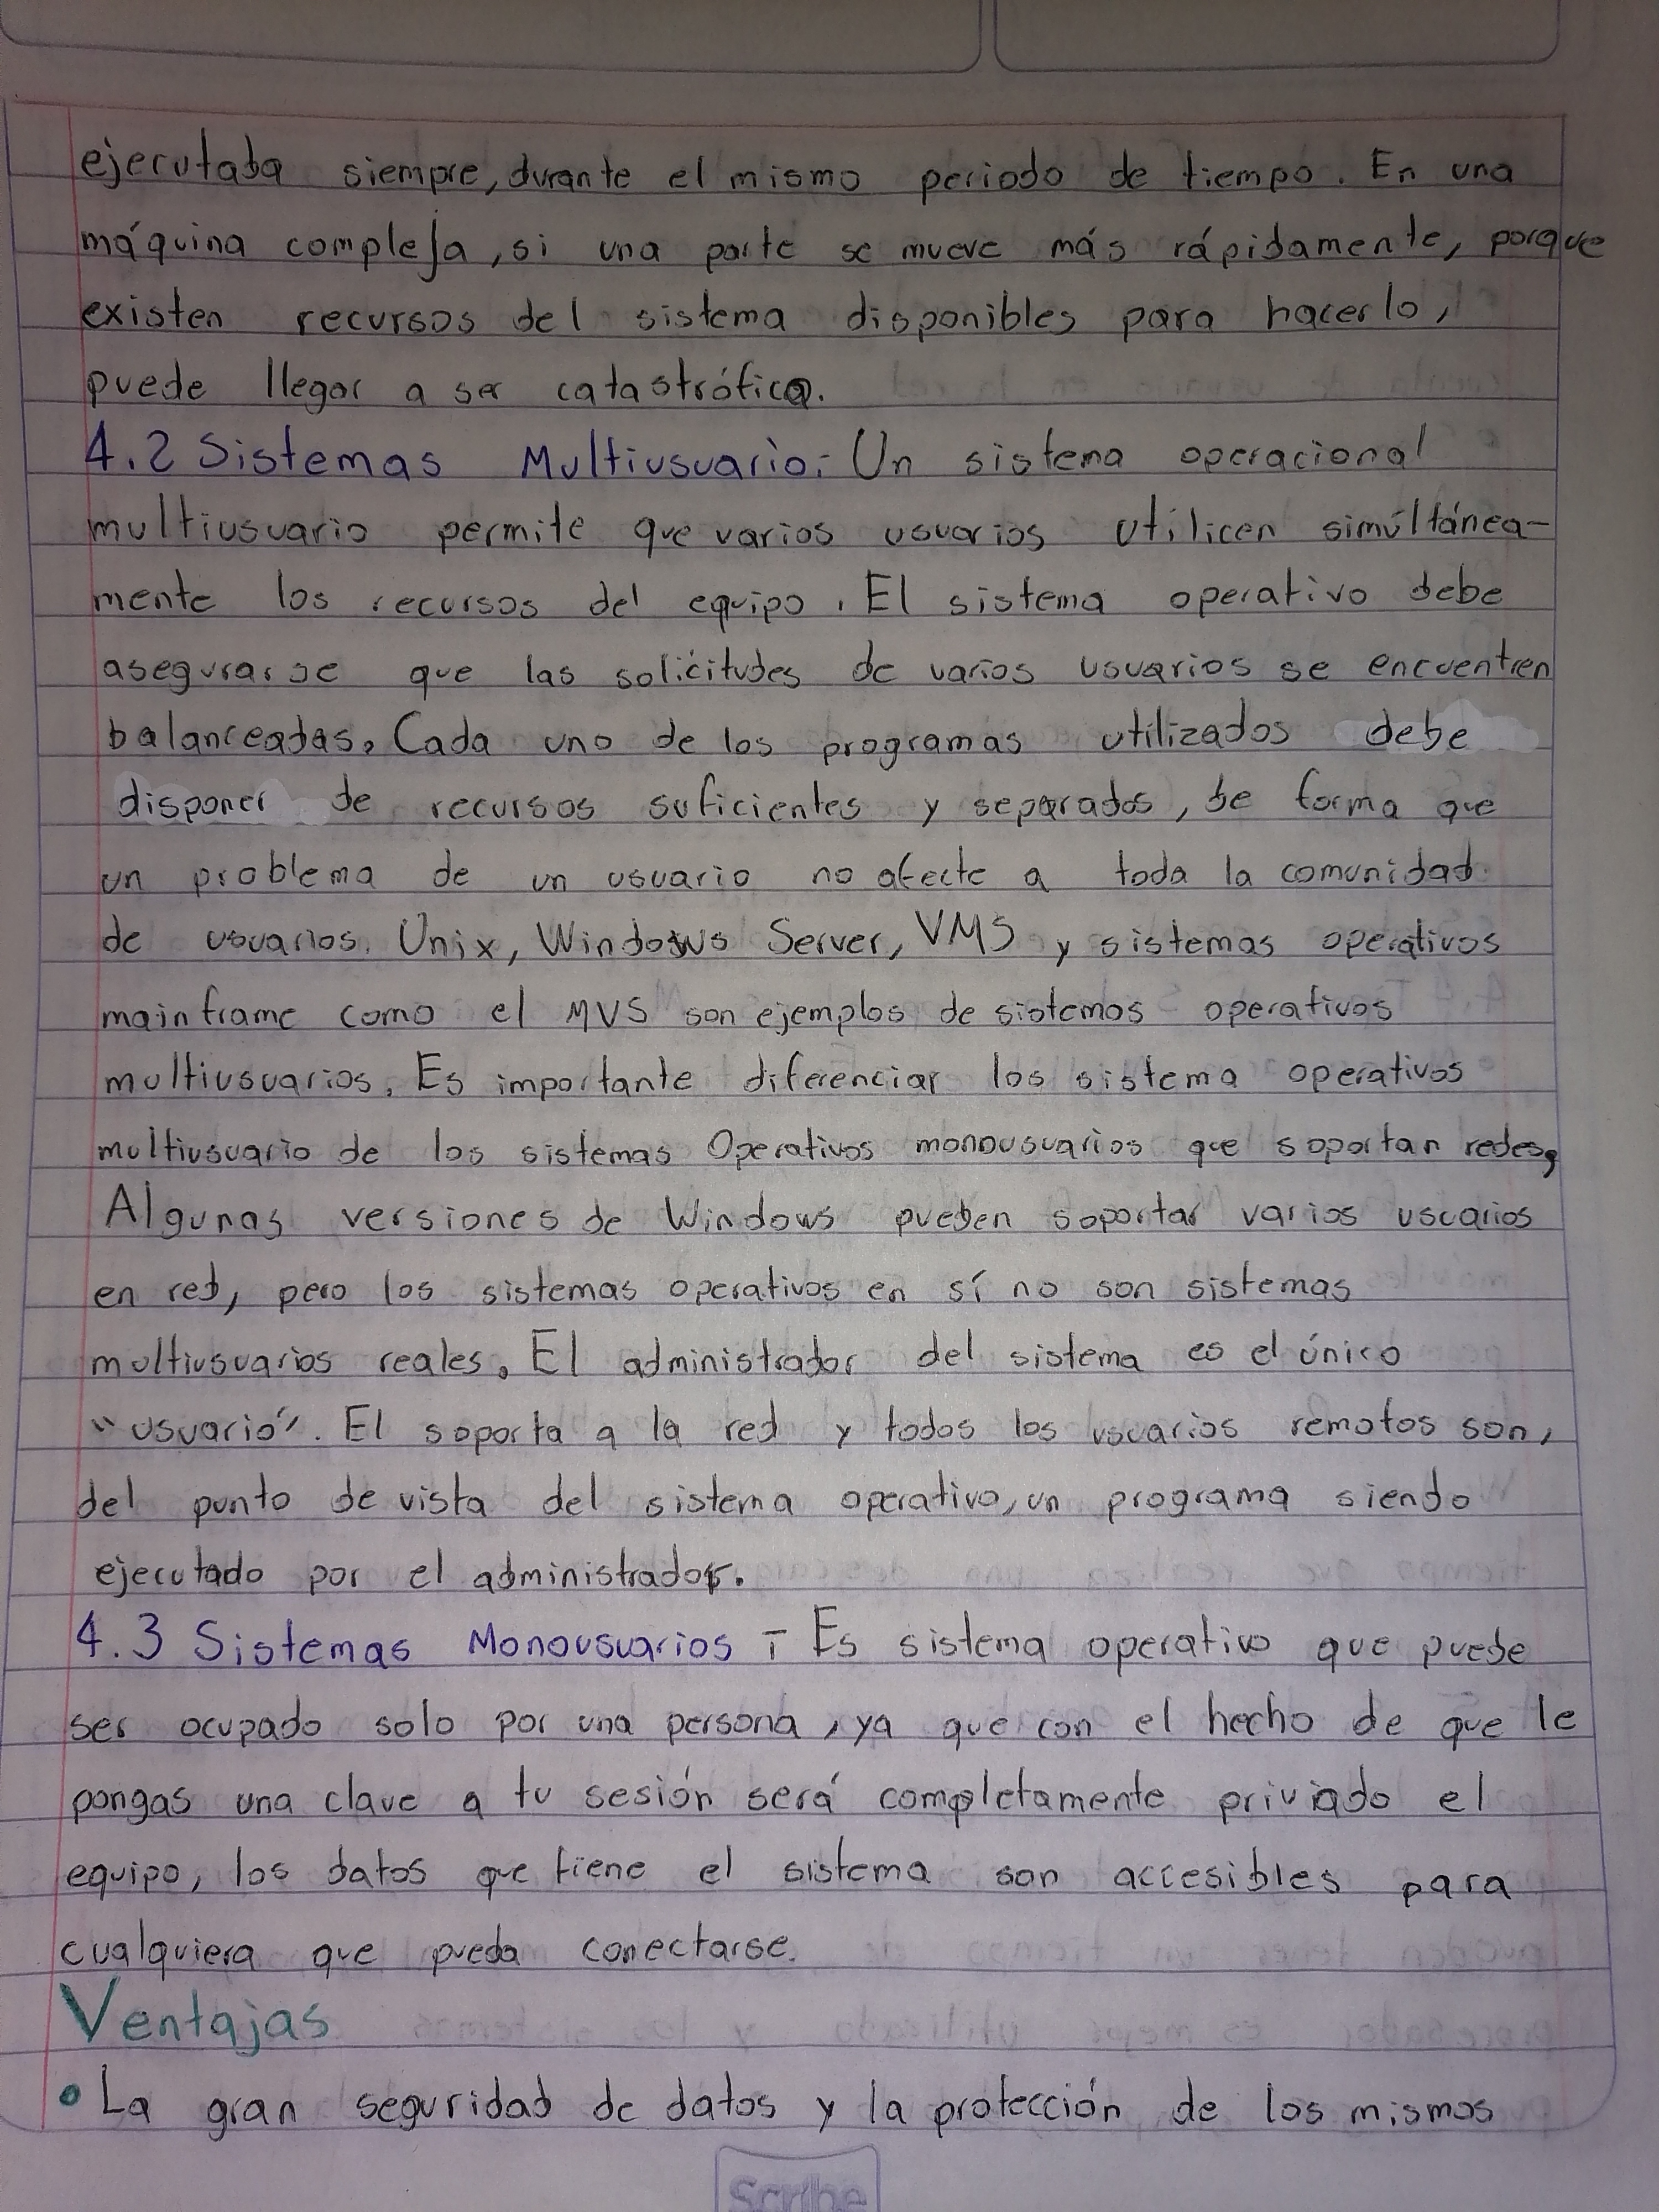 ejecutada siempre, durante el mismo periodo de tiempo. En una
máquina compleja, si una parte se mueve más rápidamente, porque
existen recursos del sistema disponibles para hacerlo,
puede llegar a ser catastrófica.
4.2 Sistemas Multiusuario:- Un sistema operacional
multiusuario permite que varios usuarios utilicen simúltánea-
mente los recursos del equipo. El sistema operativo debe
asegurarse que las solicitudes de varios usuarios se encuentren
balanceadas. Cada uno de los programas utilizados debe
disponer de recursos suficientes y separados, de forma que
un problema de un usuario no afecte a toda la comunidad
de usuarios. Unix, Windows Server, VMS y sistemas operativos
mainframe como el MVS son ejemplos de sistemas operativos
multiusuarios. Es importante diferenciar los sistema operativos
multiusuario de los sistemas Operativos monousuarios que soportan redes,
Algunas versiones de Windows pueden soportar varios usuarios
en red, pero los sistemas operativos en sí no son sistemas
multiusuarios reales. El administrador del sistema es el único
"usuario". El soporta a la red y todos los usuarios remotos son,
del punto de vista del sistema operativo, un programa siendo
ejecutado por el administrador.
4.3 Sistemas Monousuarios - Es sistema operativo que puede
ser ocupado solo por una persona, ya que con el hecho de que le
pongas una clave a tu sesión será completamente priviado el
equipo, los datos que tiene el sistema son accesibles para
cualquiera que pueda conectarse.
Ventajas
• La gran seguridad de datos y la protección de los mismos
Scribe